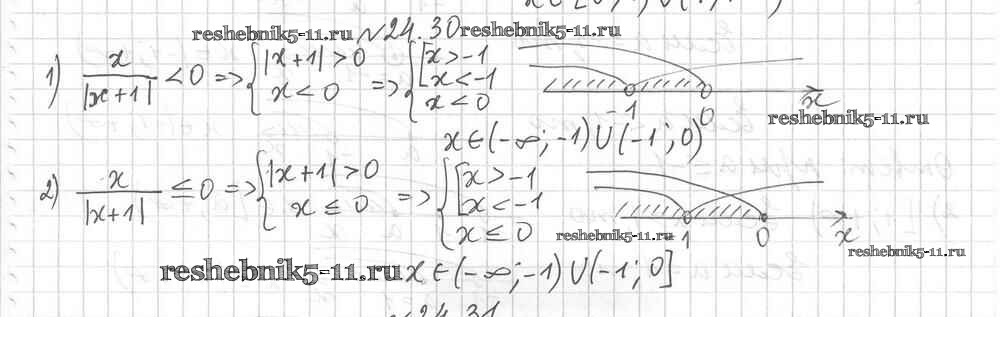 reshebnik5-11.ru №24.30 reshebnik5-11.ru
1) x/|x+1| < 0 => { |x+1| > 0 x < 0 => { [ x > -1 x < -1 x < 0 -1 0 x
reshebnik5-11.ru
x ∈ (-∞; -1) ∪ (-1; 0)
2) x/|x+1| ≤ 0 => { |x+1| > 0 x ≤ 0 => { [ x > -1 x < -1 x ≤ 0 -1 0 x
reshebnik5-11.ru
reshebnik5-11.ru
reshebnik5-11.ru x ∈ (-∞; -1) ∪ (-1; 0]
№24.31